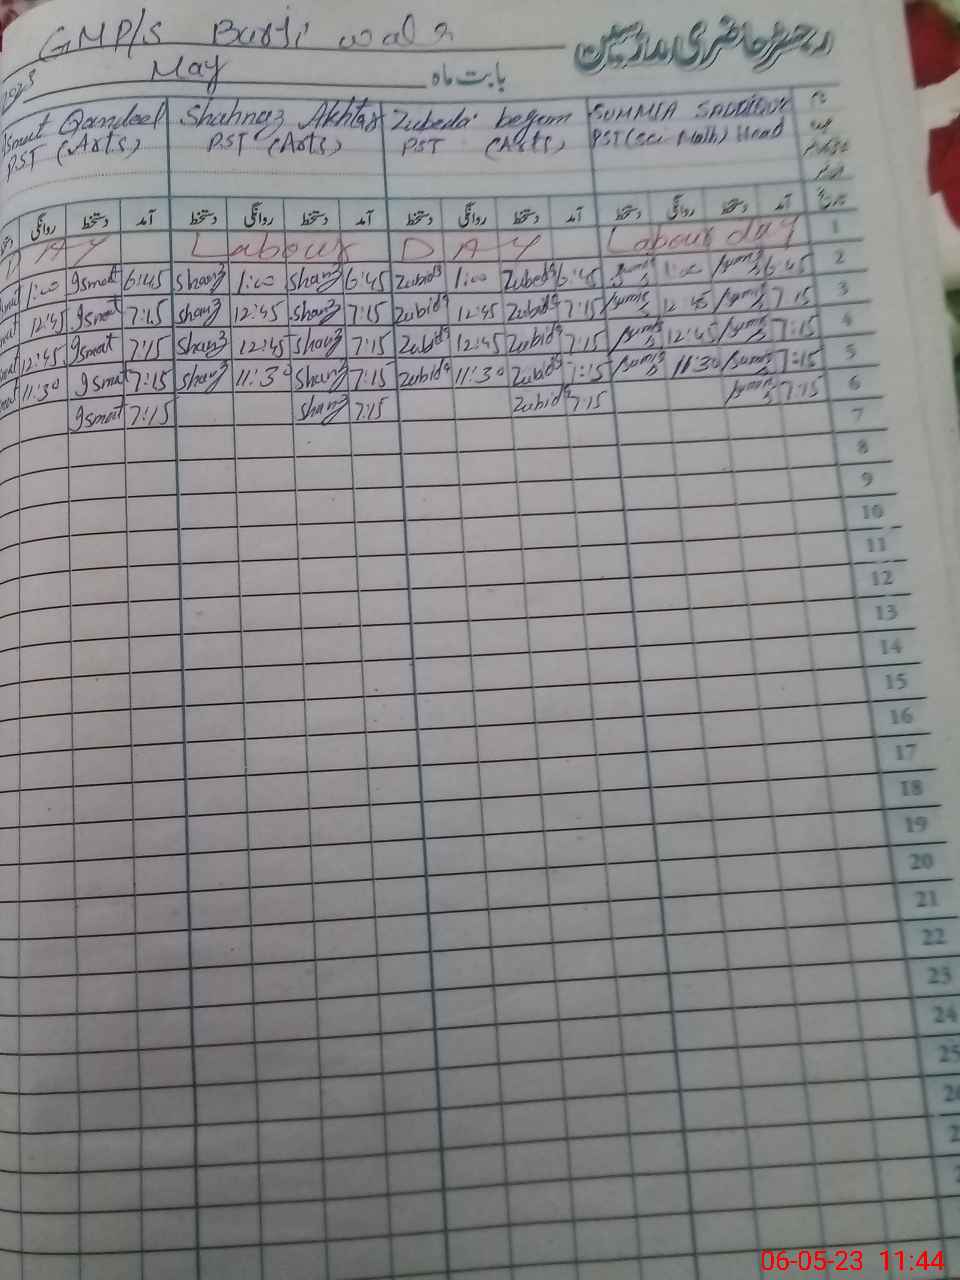 GMP/S Burji wala
رجسٹر حاضری ملازمین
2023 May بابت ماہ
Ismat Qandeel Shahnaz Akhtar Zubeda begam SUMMIA
PST (Arts) PST (Arts) PST (Arts) PST (Sci-Math) Head
روانگی دستخط آمد دستخط روانگی دستخط آمد دستخط روانگی دستخط آمد دستخط روانگی دستخط آمد
D A Y Labour D A Y Labour day 1
1:00 Ismat 6:45 Shanz 1:00 Shanz 6:45 Zubida 1:00 Zubeda 6:45 1:00 6:45 2
12:45 Ismat 7:15 Shanz 12:45 Shanz 7:15 Zubida 12:45 Zubida 7:15 12:45 7:15 3
12:45 Ismat 7:15 Shanz 12:45 Shanz 7:15 Zubida 12:45 Zubida 7:15 12:45 7:15 4
11:30 Ismat 7:15 Shanz 11:30 Shanz 7:15 Zubida 11:30 Zubida 7:15 11:30 7:15 5
Ismat 7:15 Shanz 7:15 Zubida 7:15 7:15 6
7
8
9
10
11
12
13
14
15
16
17
18
19
20
21
22
23
24
25
06-05-23 11:44